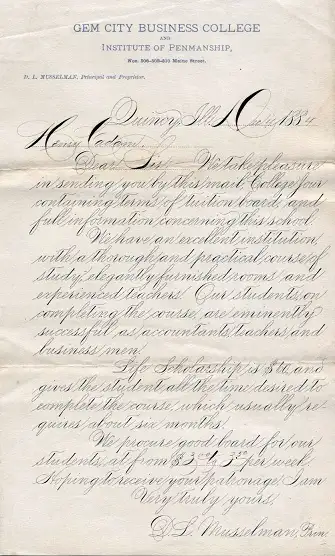 GEM CITY BUSINESS COLLEGE
AND
INSTITUTE OF PENMANSHIP,
Nos. 506-508-510 Maine Street.
D. L. MUSSELMAN, Principal and Proprietor.
Quincy, Ill. 1884
Henry Eadom,
Dear Sir: We take pleasure
in sending you by this mail College Jour
containing terms of tuition, board, and
full information concerning this school.
We have an excellent institution,
with a thorough and practical course of
study, elegantly furnished rooms and
experienced teachers. Our students, on
completing the course, are eminently
successful as accountants, teachers, and
business men.
Life Scholarship is $ and
gives the student all the time desired to
complete the course, which usually re
quires about six months.
We procure good board for our
students, at from $3 00 to 3 50 per week.
Hoping to receive your patronage I am
Very truly yours,
D. L. Musselman, Prin.